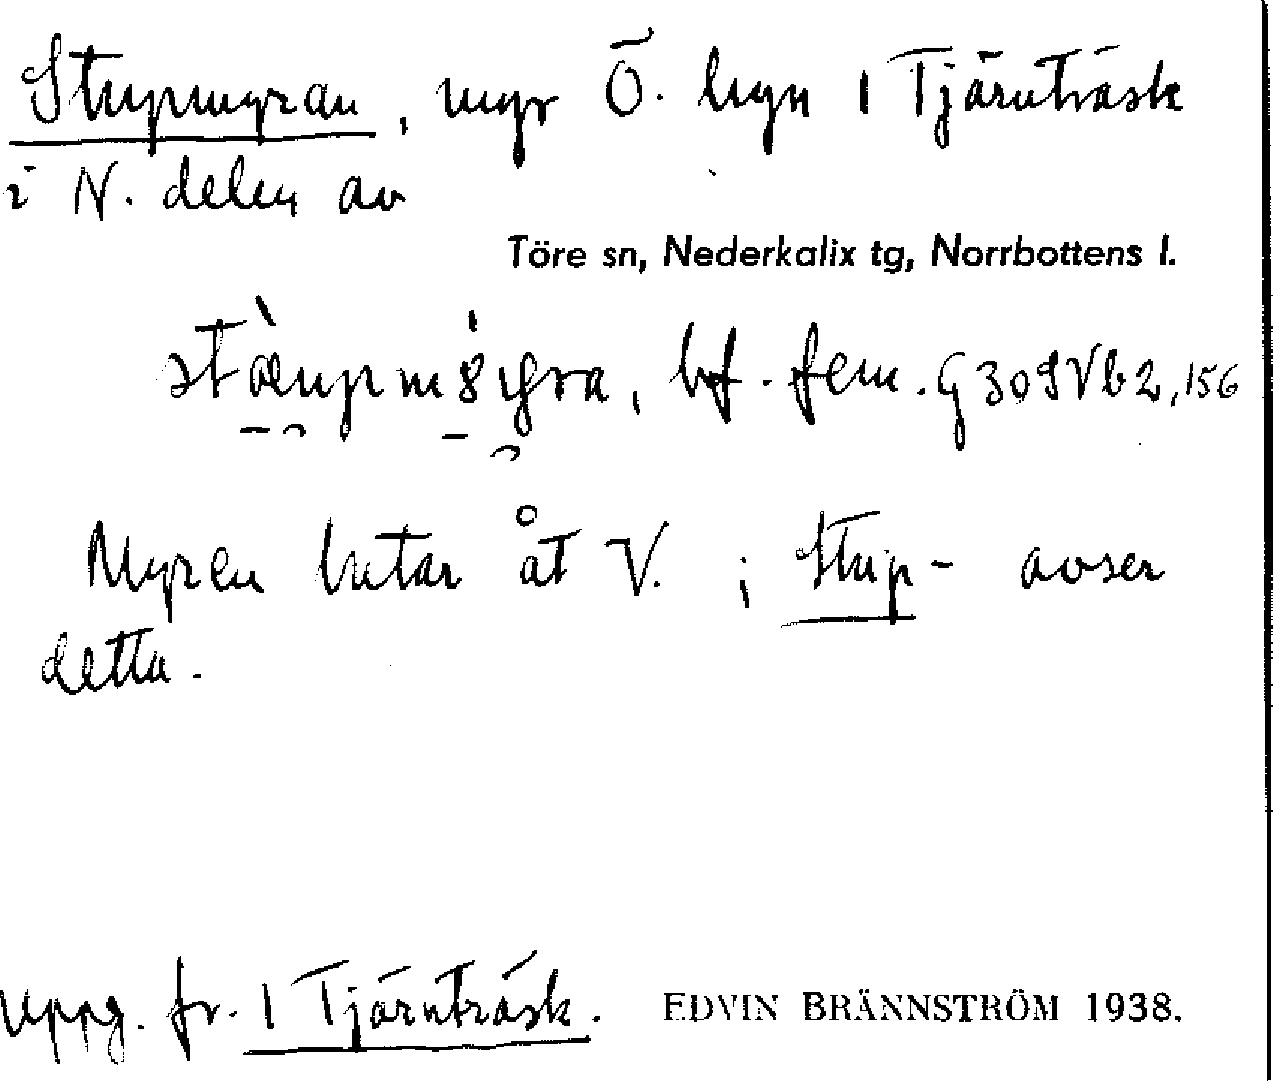 Stupmyran, myr Ö. byn 1 Tjärnträsk
i N. delen av
Töre sn, Nederkalix tg, Norrbottens l.
bf. fem.
Myren lutar åt V. ; Stup- avser
detta.
uppg. fr. 1 Tjärnträsk. EDVIN BRÄNNSTRÖM 1938.